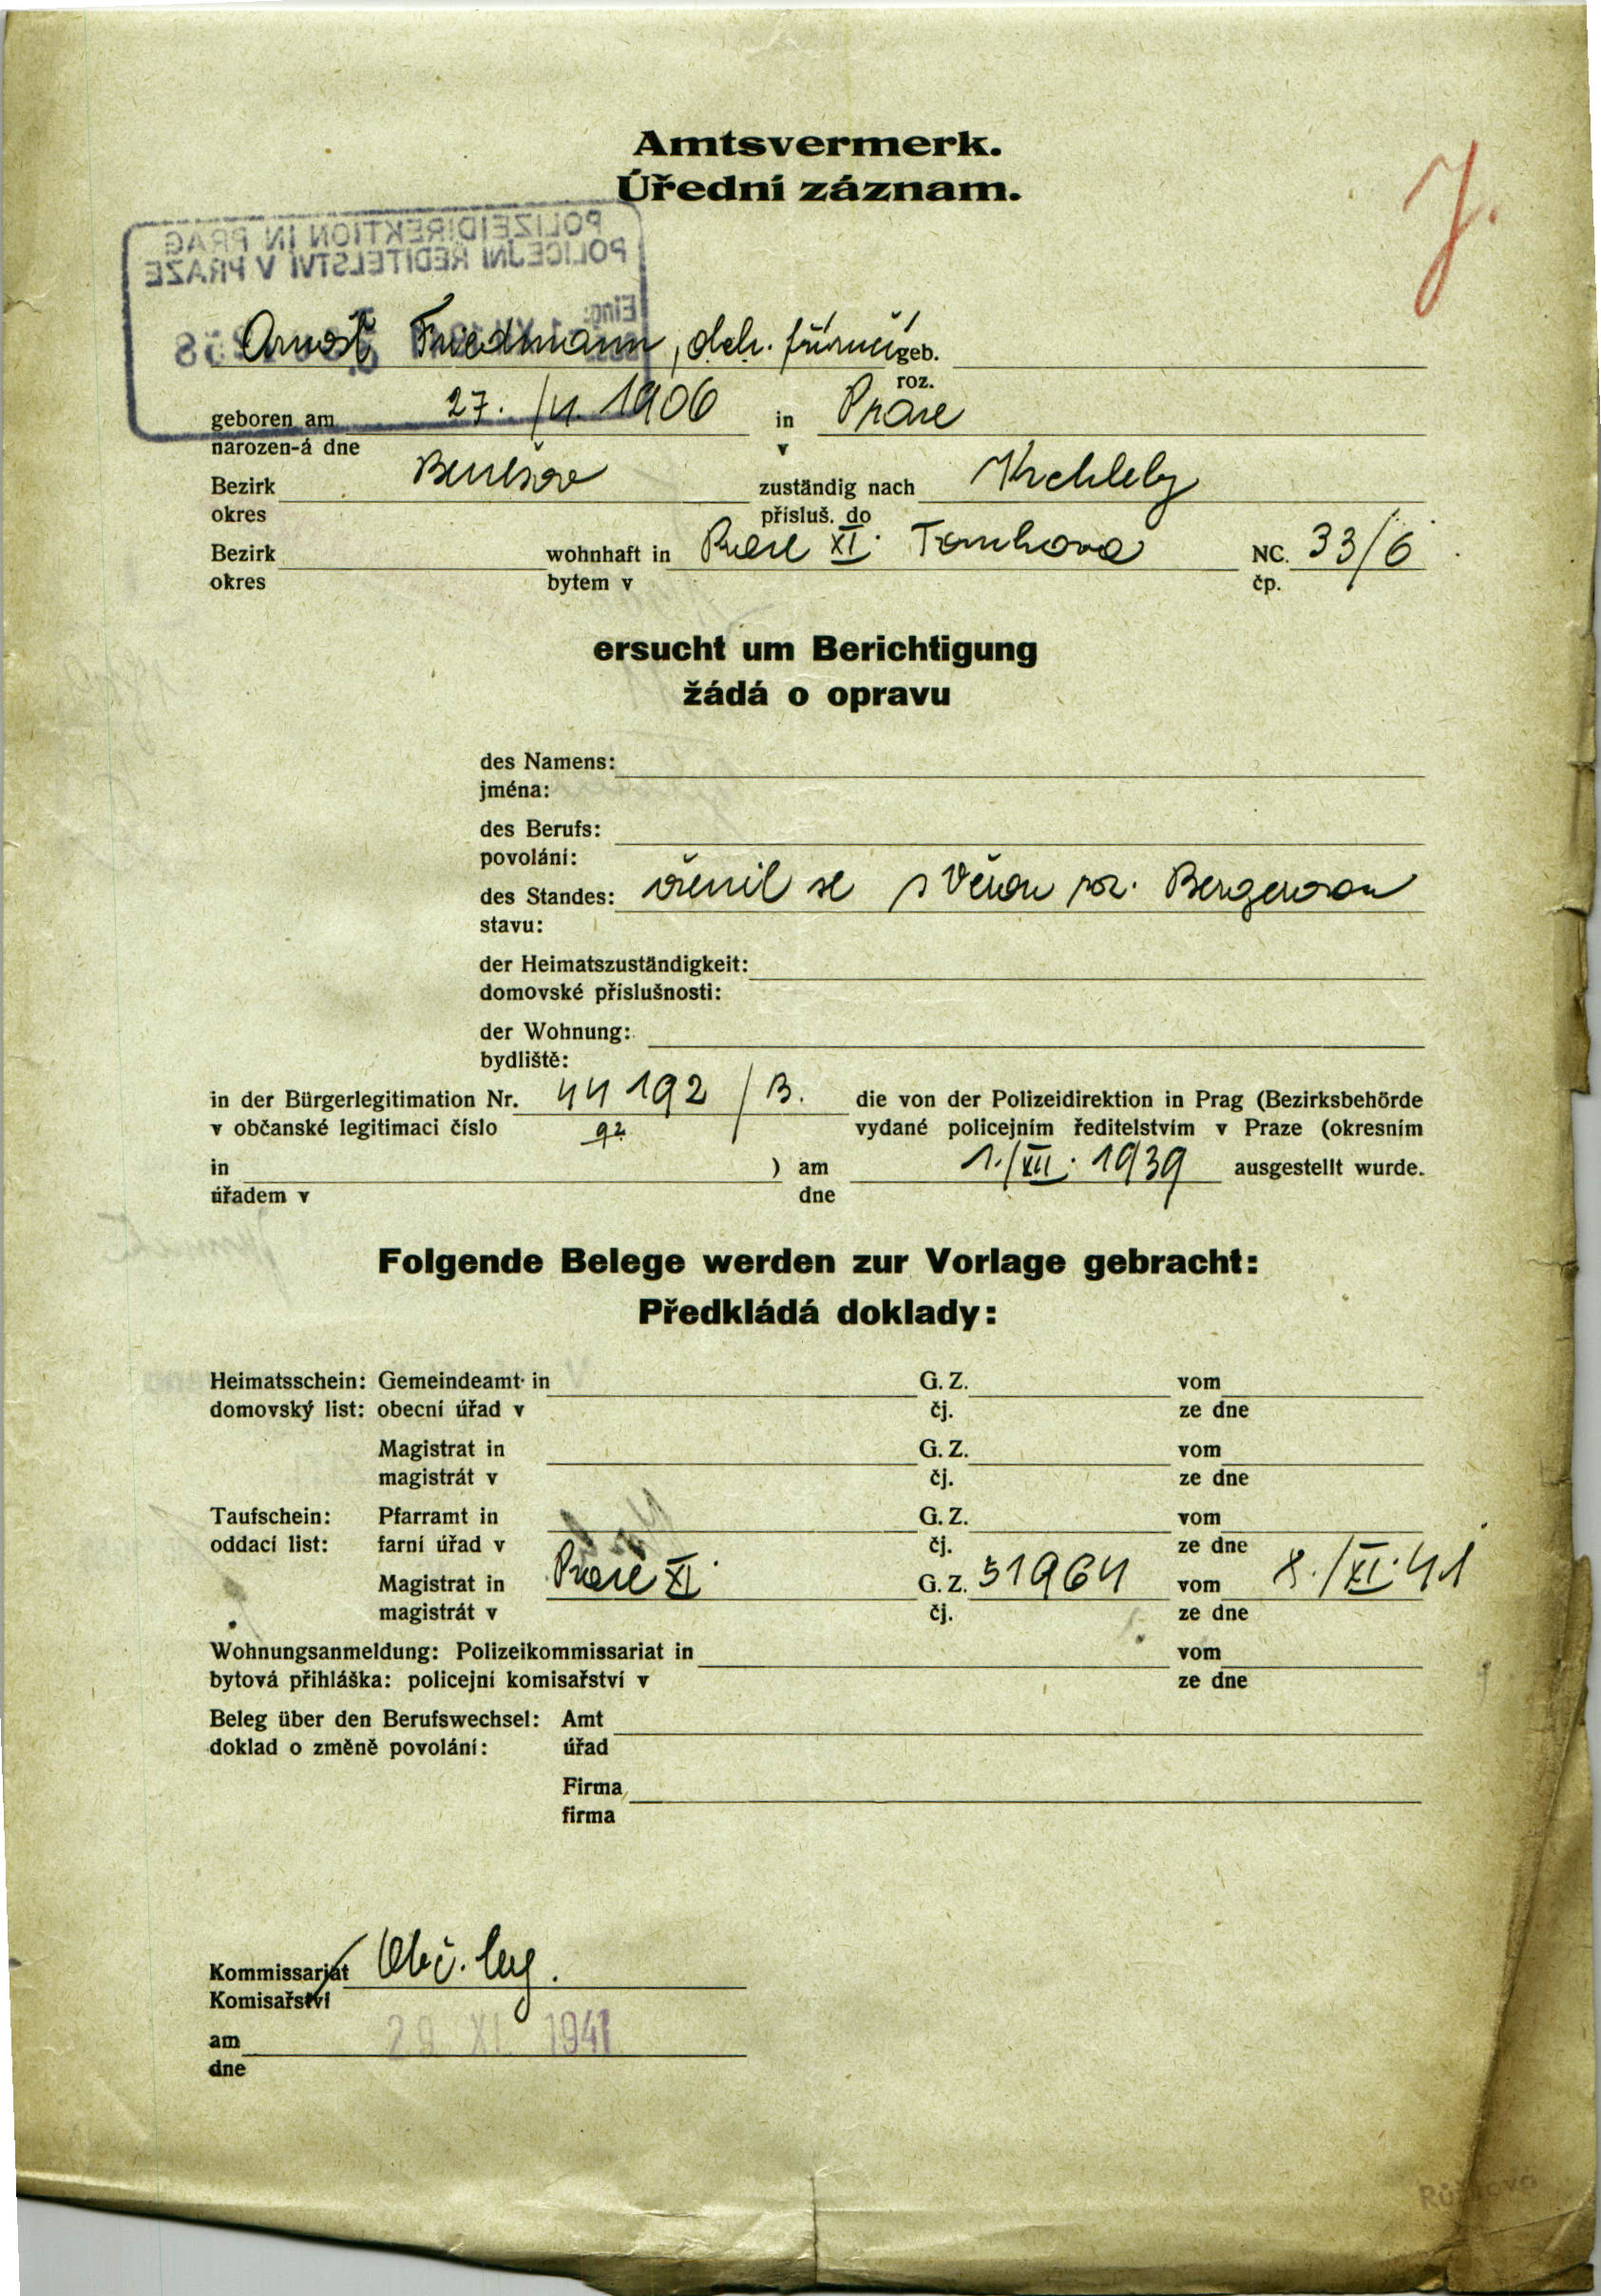 Amtsvermerk.
Úřední záznam.
J.
POLIZEIDIREKTION IN PRAG
POLICEJNÍ ŘEDITELSTVÍ V PRAZE
Eing.
Arnošt Friedmann, geb.
roz.
geboren am 27. 1906 in Praze
narozen-á dne v
Bezirk Benešov zuständig nach Krchleby
okres přísluš. do
Bezirk wohnhaft in Praze XI. NC. 33/6
okres bytem v čp.
ersucht um Berichtigung
žádá o opravu
des Namens:
jména:
des Berufs:
povolání:
des Standes: oženil se s Věrou roz. Bergerovou
stavu:
der Heimatszuständigkeit:
domovské příslušnosti:
der Wohnung:
bydliště:
in der Bürgerlegitimation Nr. 44192/B. die von der Polizeidirektion in Prag (Bezirksbehörde
v občanské legitimaci číslo 92 vydané policejním ředitelstvím v Praze (okresním
in ) am 1./XII. 1939 ausgestellt wurde.
úřadem v dne
Folgende Belege werden zur Vorlage gebracht:
Předkládá doklady:
Heimatsschein: Gemeindeamt in G. Z. vom
domovský list: obecní úřad v čj. ze dne
Magistrat in G. Z. vom
magistrát v čj. ze dne
Taufschein: Pfarramt in G. Z. vom
oddací list: farní úřad v čj. ze dne
Magistrat in Praze XI. G. Z. 51964 vom 8./XI. 41
magistrát v čj. ze dne
Wohnungsanmeldung: Polizeikommissariat in vom
bytová přihláška: policejní komisařství v ze dne
Beleg über den Berufswechsel: Amt
doklad o změně povolání: úřad
Firma
firma
Kommissariat Obč. leg.
Komisařství
am 29 XI. 1941
dne
Růžková